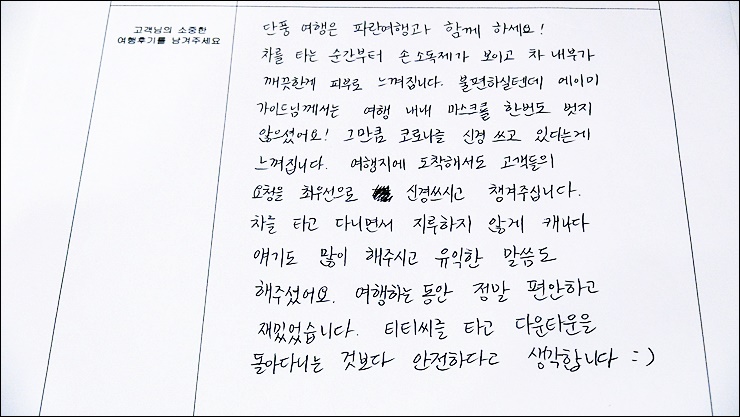 고객님의 소중한
여행후기를 남겨주세요
단풍 여행은 파란여행과 함께 하세요!
차를 타는 순간부터 손소독제가 보이고 차 내부가
깨끗한게 피부로 느껴집니다. 불편하실텐데 에이미
가이드님께서는 여행 내내 마스크를 한번도 벗지
않으셨어요! 그만큼 코로나를 신경 쓰고 있다는게
느껴집니다. 여행지에 도착해서도 고객들의
요청을 최우선으로 신경쓰시고 챙겨주십니다.
차를 타고 다니면서 지루하지 않게 캐나다
얘기도 많이 해주시고 유익한 말씀도
해주셨어요. 여행하는 동안 정말 편안하고
재밌었습니다. 티티씨를 타고 다운타운을
돌아다니는 것보다 안전하다고 생각합니다 :)